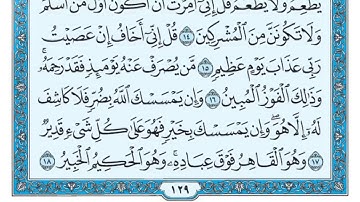 يُطْعِمُ وَلَا يُطْعَمُ قُلْ إِنِّي أُمِرْتُ أَنْ أَكُونَ أَوَّلَ مَنْ أَسْلَمَ
وَلَا تَكُونَنَّ مِنَ الْمُشْرِكِينَ ١٤ قُلْ إِنِّي أَخَافُ إِنْ عَصَيْتُ
رَبِّي عَذَابَ يَوْمٍ عَظِيمٍ ١٥ مَّن يُصْرَفْ عَنْهُ يَوْمَئِذٍ فَقَدْ رَحِمَهُ
وَذَٰلِكَ الْفَوْزُ الْمُبِينُ ١٦ وَإِن يَمْسَسْكَ اللَّهُ بِضُرٍّ فَلَا كَاشِفَ
لَهُ إِلَّا هُوَ وَإِن يَمْسَسْكَ بِخَيْرٍ فَهُوَ عَلَىٰ كُلِّ شَيْءٍ قَدِيرٌ
١٧ وَهُوَ الْقَاهِرُ فَوْقَ عِبَادِهِ وَهُوَ الْحَكِيمُ الْخَبِيرُ ١٨
١٢٩